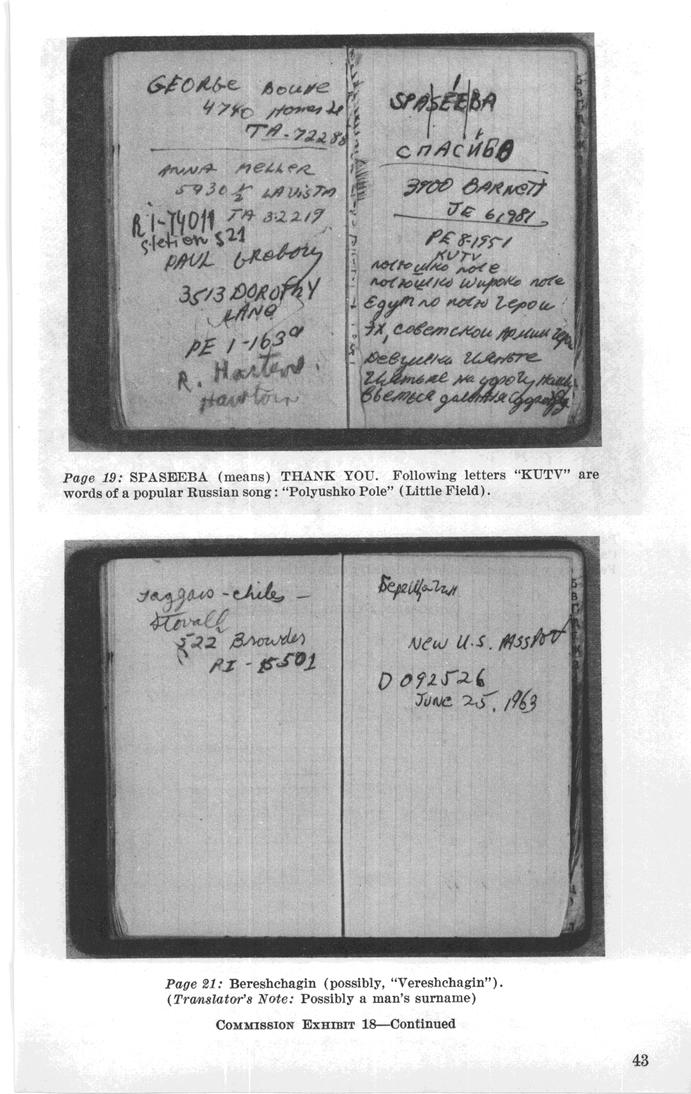 GEORGE BOUHE
4740 Homer
TA-72288
ANNA MELLER
5930 ½ LAVISTA
RI-74011 TA 32219
station 521
PAUL GREGORY
3513 DOROTHY
LANE
PE 1-163
R.
SPASEEBA
СПАСИБО
3900 BARNETT
JE 61981
PE 8-1951
KUTV
полюшко поле
полюшко широко поле
едут по полю герои
эх, советской армии герои
девушки гляньте
гляньте на дорогу нашу
вьется дальняя дорога
Page 19: SPASEEBA (means) THANK YOU. Following letters "KUTV" are
words of a popular Russian song: "Polyushko Pole" (Little Field).
Jaggars-chiles-
Stovall
522 Browder
RI-15501
Берещагин
NEW U.S. PASSPORT
D 092526
JUNE 25, 1963
Page 21: Bereshchagin (possibly, "Vereshchagin").
(Translator's Note: Possibly a man's surname)
COMMISSION EXHIBIT 18—Continued
43